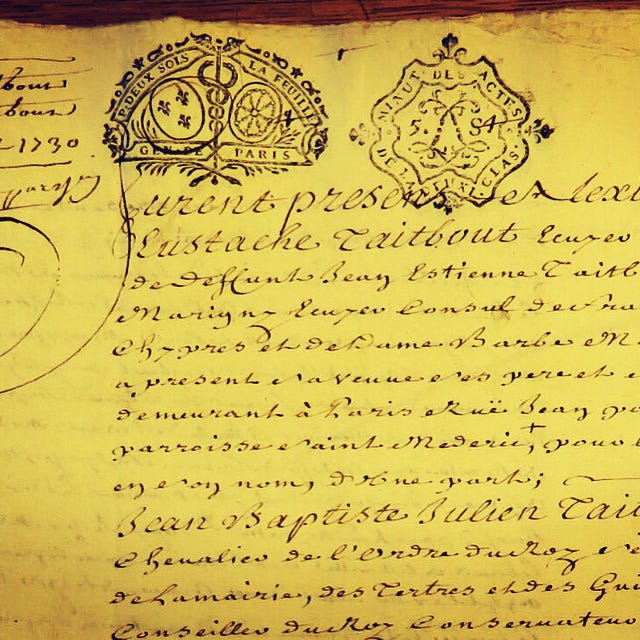 P. DEUX SOLS LA FEUILLE
GEN. DE PARIS
MINUT. DES ACTES
DE LA
5. S 4
1730
furent presens
Eustache Taitbout Ecuyer
de deffunt Jean Estienne Taitb
Marigny Ecuyer Consul de fra
Chypres et de Dame Barbe M
a present sa veuve ses pere et
demeurant à Paris Ruë Jean
parroisse saint Mederic, pour
en son nom, d'une part;
Jean Baptiste Julien Tait
Chevalier de l'Ordre du Roy
de Lamairie, des Tertres et des Gu
Conseiller du Roy Conservateur